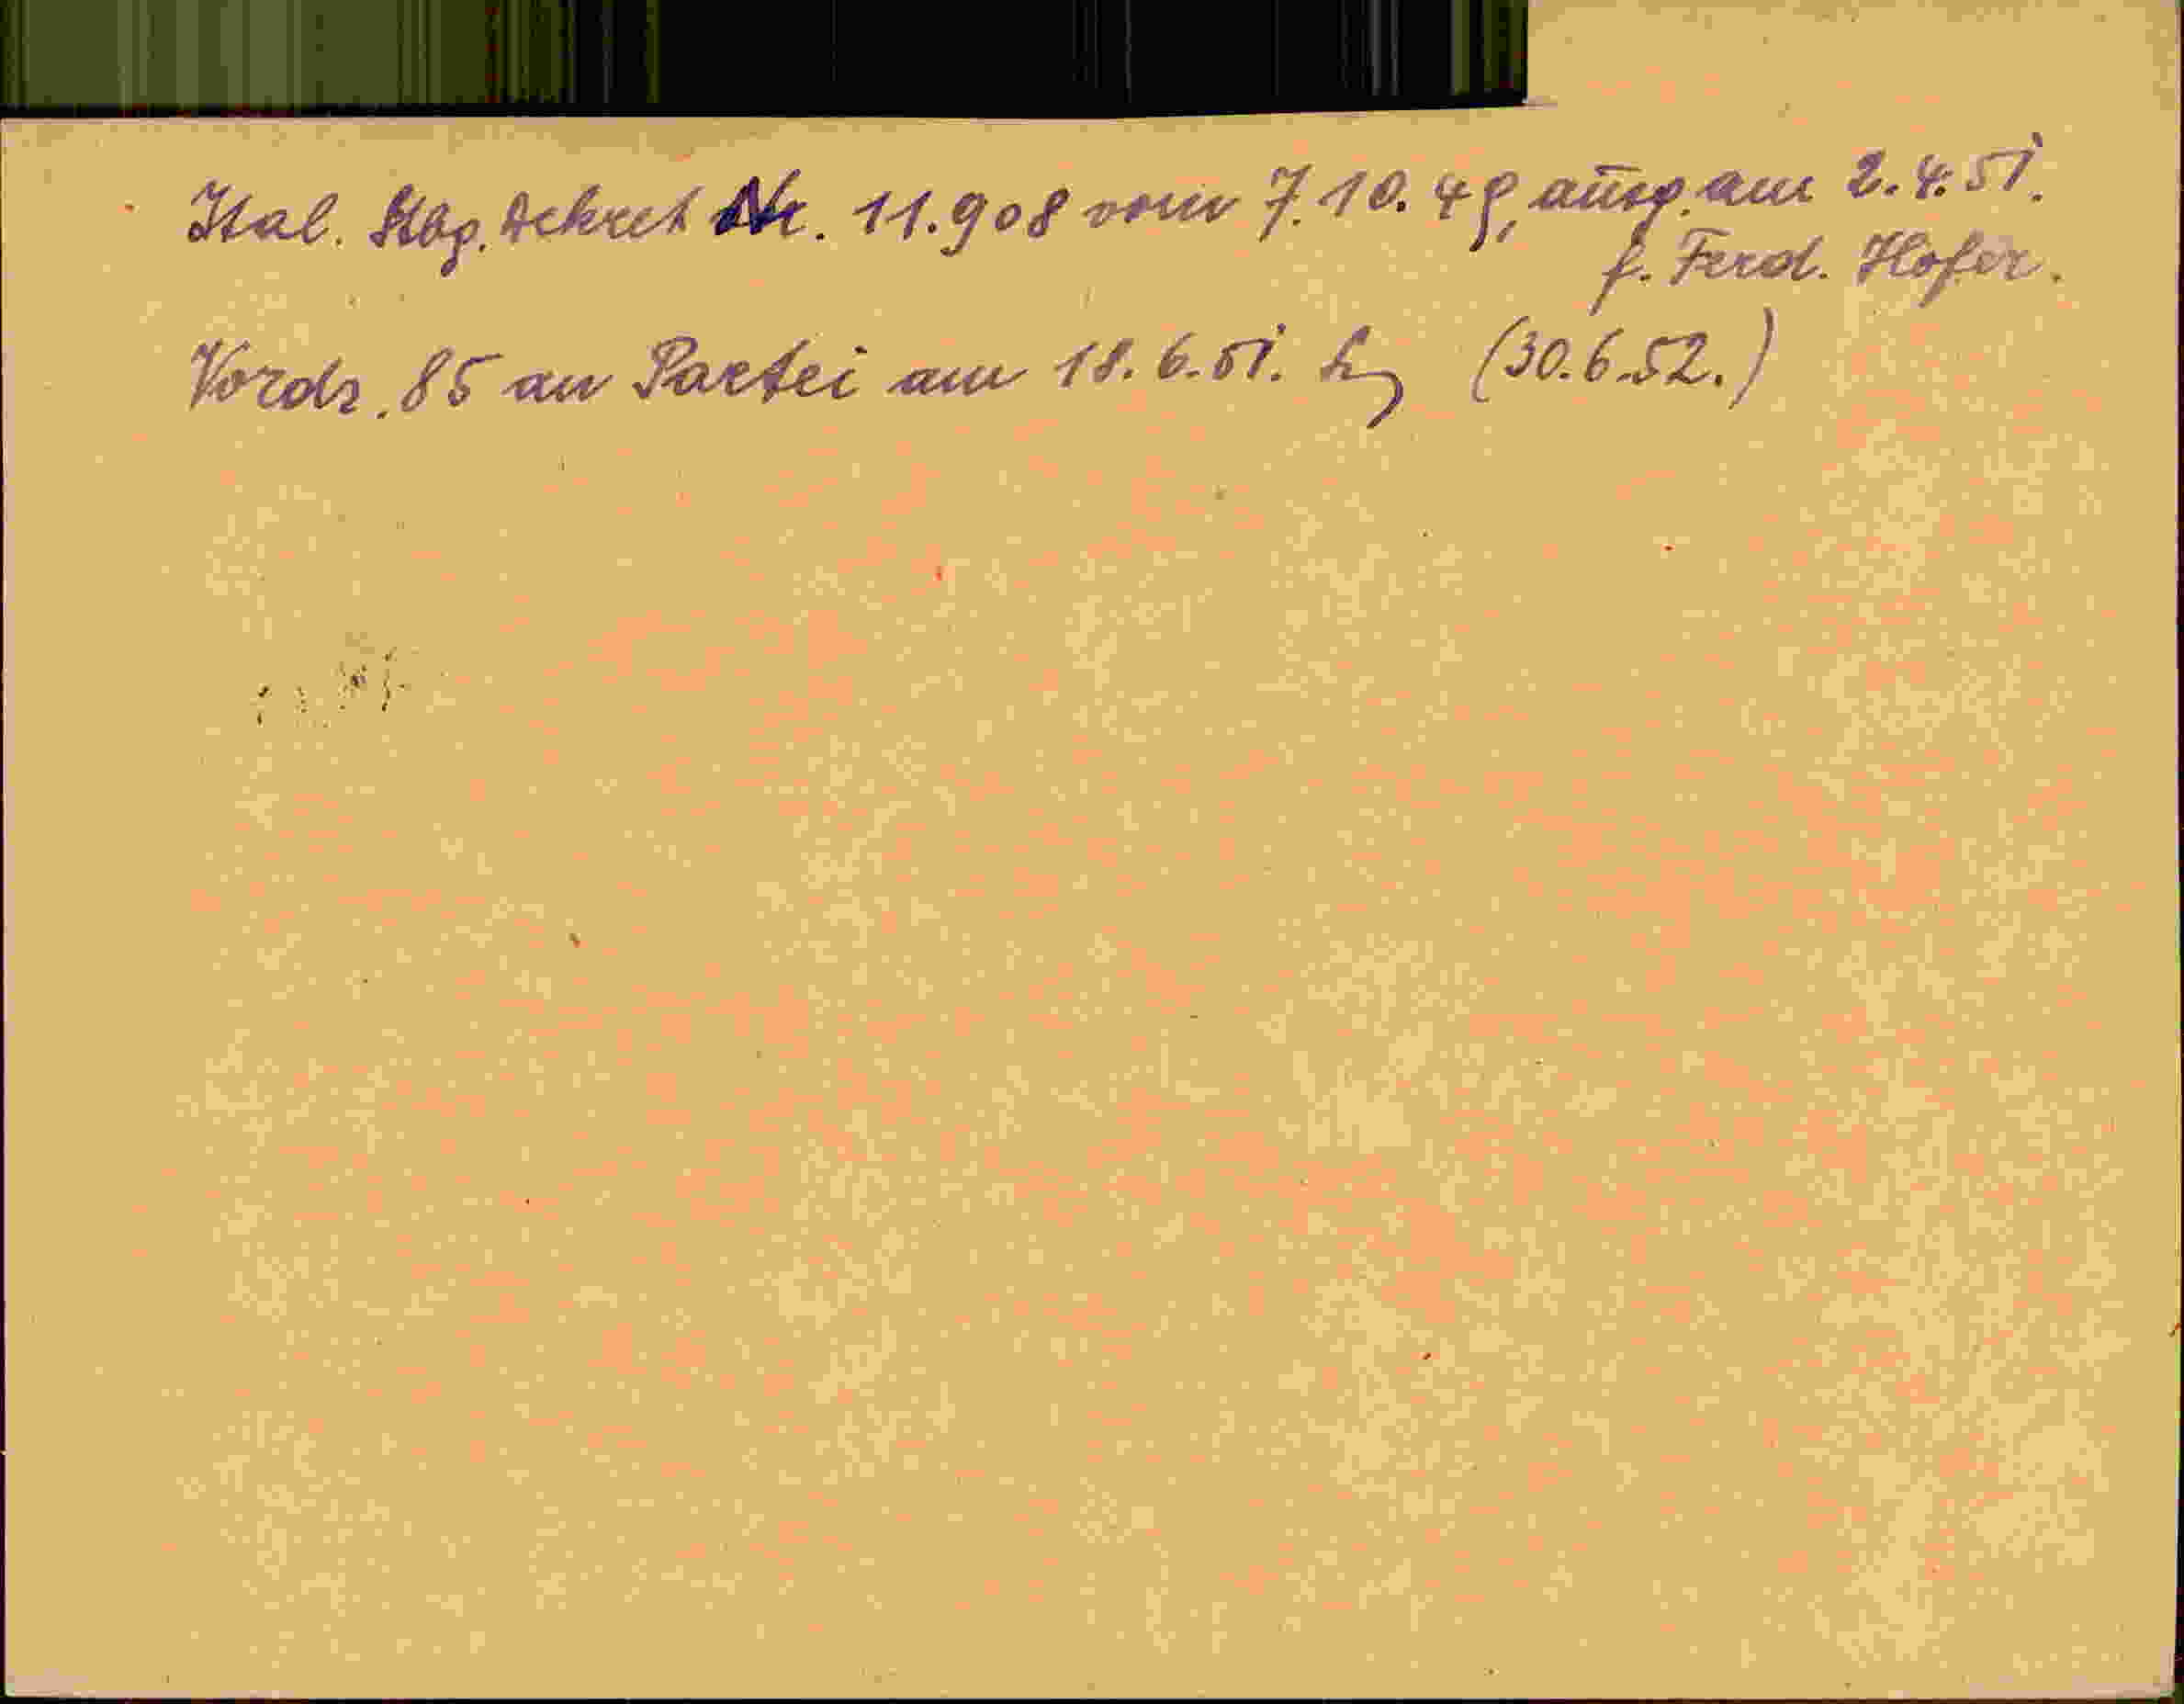 Ital. Stbg. Dekret Nr. 11.908 vom 7.10.49, ausg. am 2.4.51.
f. Ferd. Hofer.
Vordr. 85 an Partei am 18.6.51. (30.6.52.)